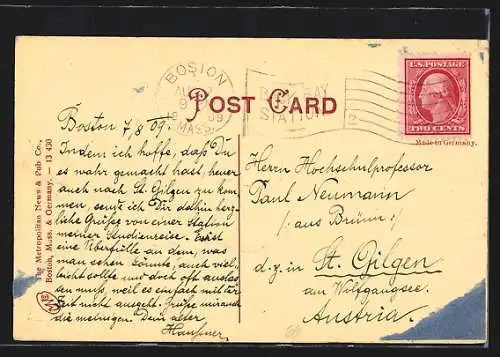 POST CARD
BOSTON
MASS.
BACK BAY
STATION
2
U.S. POSTAGE
TWO CENTS
Made in Germany.
The Metropolitan News & Pub Co.,
Boston, Mass. & Germany. — 13 430
Boston 7/8 09.
Indem ich hoffe, daß Du
es wahr gemacht hast, heuer
auch nach St. Gilgen zu kom-
men, send ich Dir dahin herz-
liche Grüße von einer Station
meiner Studienreise. Es ist
eine Überfülle an dem, was
man sehen könnte, auch viel-
leicht sollte und doch oft auslas-
sen muß, weil es einfach mit der
Zeit nicht ausgeht. Grüße mir auch
die meinigen. Dein alter
Haußner
Herrn Hochschulprofessor
Paul Neumann
/: aus Brünn :/
d. z. in St. Gilgen
am Wolfgangsee.
Austria.